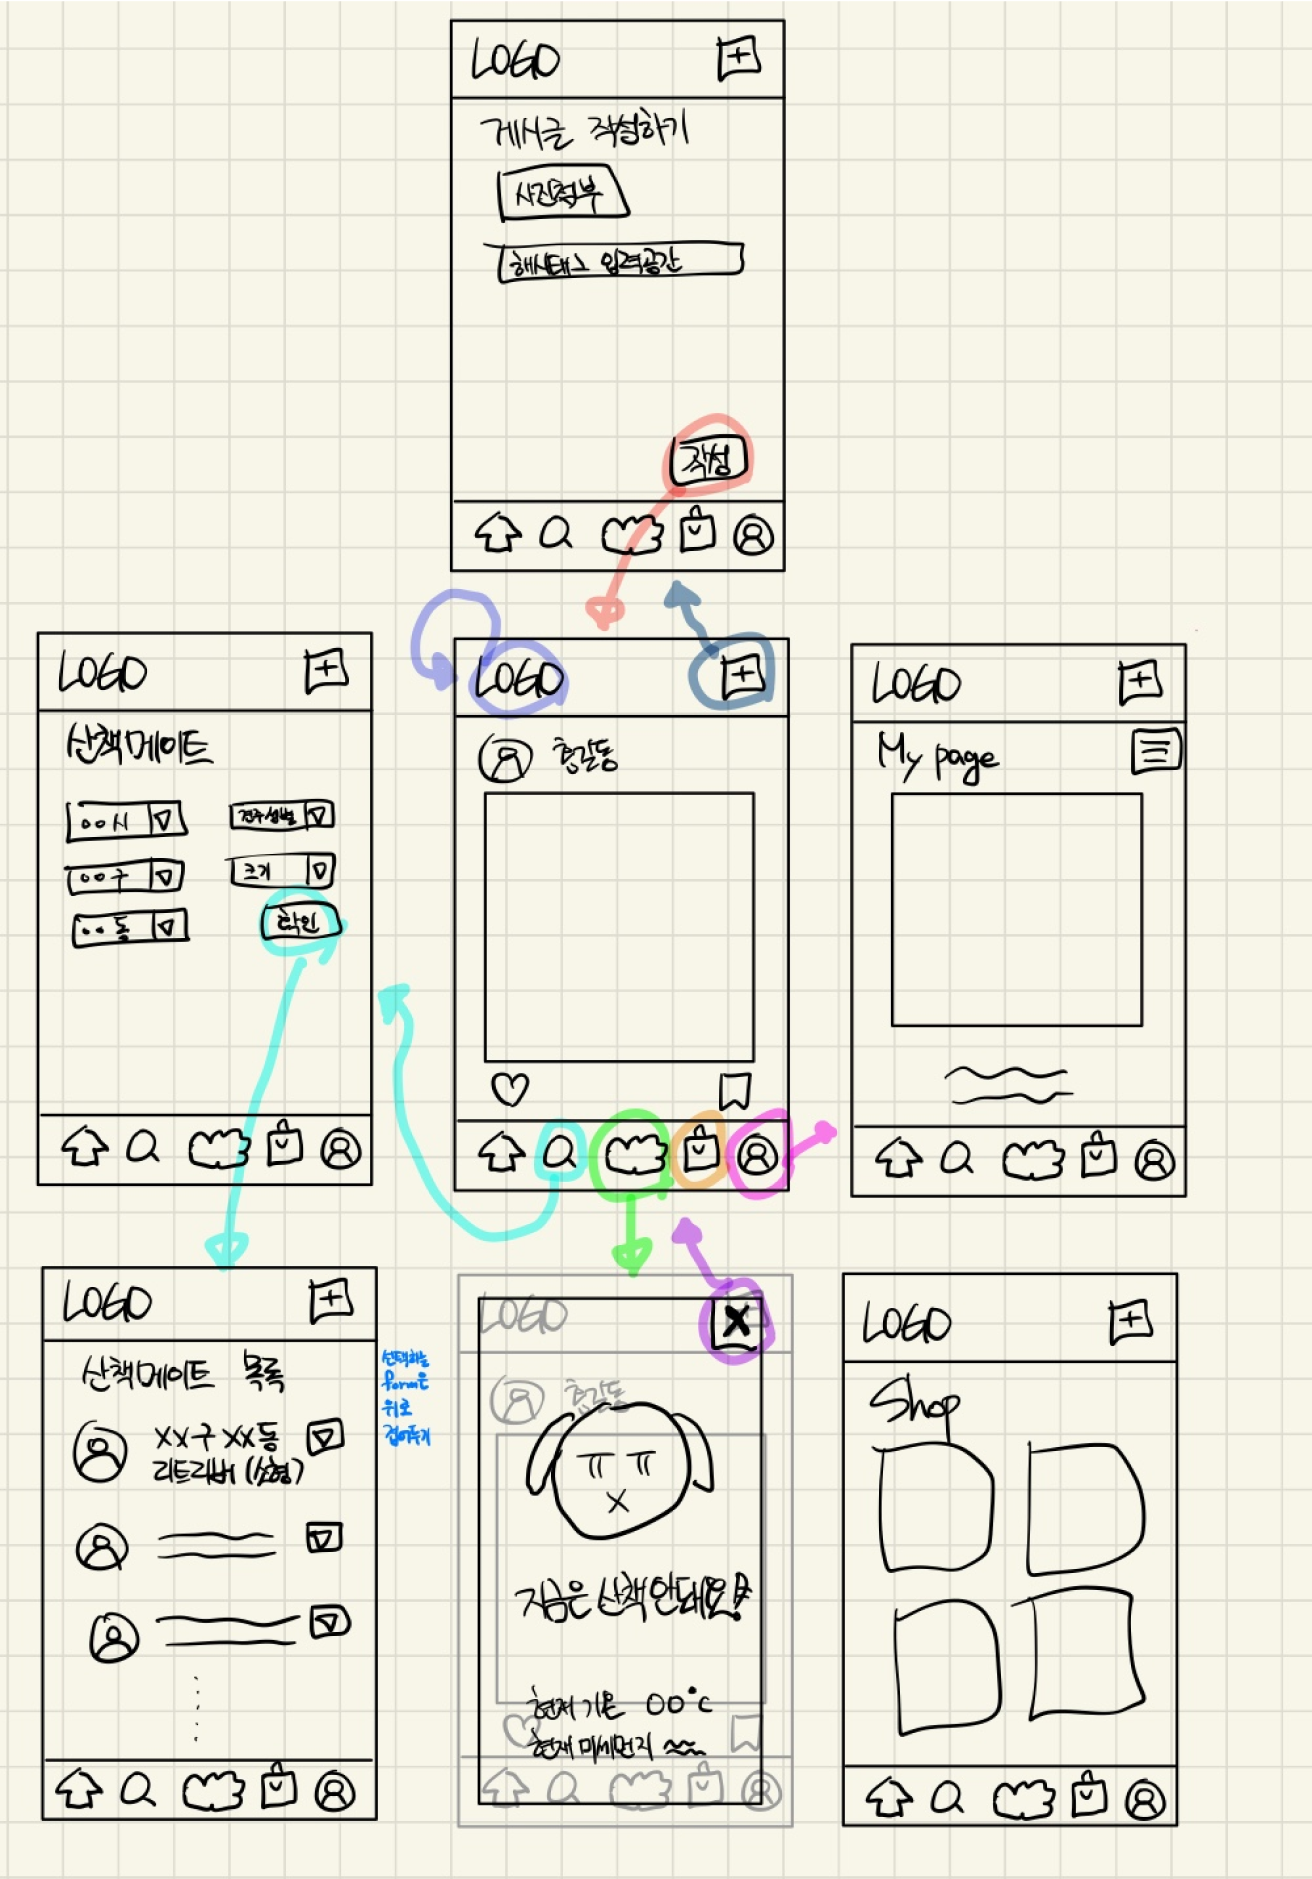 LOGO
게시글 작성하기
사진첨부
해시태그 입력공간
작성
LOGO
산책메이트
00시
견주성별
00구
크기
00동
확인
LOGO
홍길동
LOGO
My page
LOGO
산책메이트 목록
XX구 XX동
리트리버 (소형)
선택하는
form은
위로
접어두기
LOGO
X
홍길동
지금은 산책 안돼요!
현재 기온 00°C
현재 미세먼지
LOGO
Shop